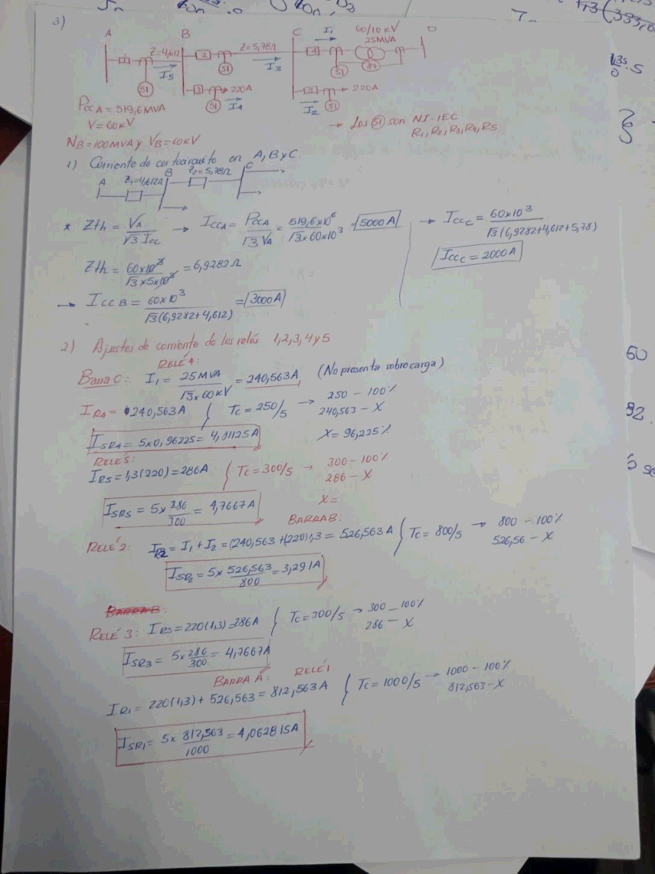 3)
A B C D
I₁ 60/10 kV
25MVA
Z=4,612 Z=5,78Ω
1 2 4
51 I5 51 I3 51 87
3 220A 5 220A
51 I4 I2 51
PccA = 519,6 MVA
V = 60 kV
→ Los 51 son NI-IEC
R1, R2, R3, R4, R5
NB = 100 MVA y VB = 60 kV
1) Corriente de cortocircuito en A, B y C.
A Z1=4,612Ω B Z2=5,78Ω C
* Zth = VA/√3 Icc → IccA = PccA/√3.VA = 519,6x10⁶/√3x60x10³ = 5000A
→ Iccc = 60x10³/√3(6,9282+4,612+5,78)
Iccc = 2000A
Zth = 60x10³/√3x5x10³ = 6,9282Ω
→ IccB = 60x10³/√3(6,9282+4,612) = 3000A
2) Ajustes de corriente de los relés 1,2,3,4 y 5
RELÉ 4:
Barra C: I₁ = 25MVA/√3x60kV = 240,563A (No presenta sobrecarga)
IR4 = 240,563A { Tc = 250/5 → 250 - 100%
240,563 - X
ISR4 = 5x0,96225 = 4,81125A X = 96,225%
RELÉ 5:
IR5 = 1,3(220) = 286A { Tc = 300/5 → 300 - 100%
286 - X
ISR5 = 5x 286/300 = 4,7667A X =
BARRA B:
RELÉ 2: IR2 = I₁ + I₂ = (240,563 + (220)1,3 = 526,563A { Tc = 800/5 → 800 - 100%
526,56 - X
ISR2 = 5x 526,563/800 = 3,291A
BARRA B:
RELÉ 3: IR3 = 220(1,3) = 286A { Tc = 300/5 → 300 - 100%
286 - X
ISR3 = 5x 286/300 = 4,7667A
BARRA A: RELÉ 1
IR1 = 220(1,3) + 526,563 = 812,563A { Tc = 1000/5 → 1000 - 100%
812,563 - X
ISR1 = 5x 812,563/1000 = 4,062815A
60
92.